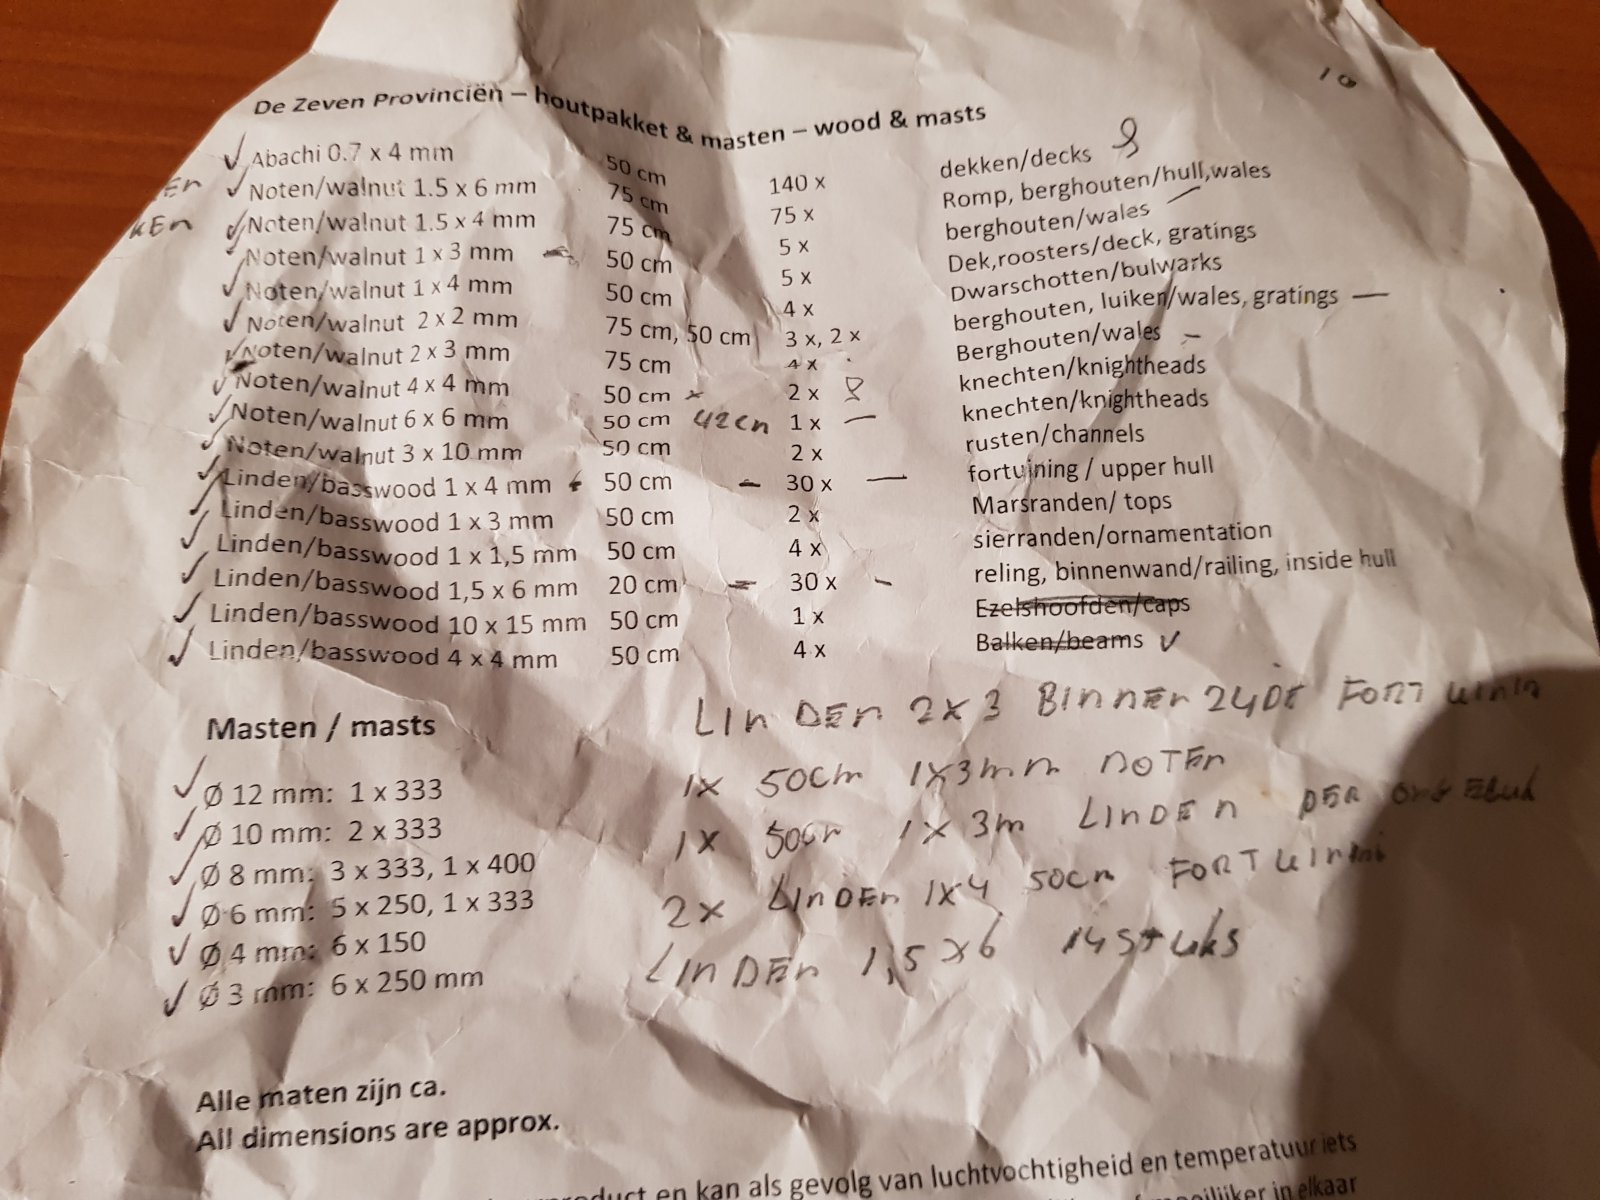 10
De Zeven Provinciën – houtpakket & masten – wood & masts
Abachi 0.7 x 4 mm 50 cm 140 x dekken/decks
Noten/walnut 1.5 x 6 mm 75 cm 75 x Romp, berghouten/hull,wales
Noten/walnut 1.5 x 4 mm 75 cm 5 x berghouten/wales
Noten/walnut 1 x 3 mm 50 cm 5 x Dek,roosters/deck, gratings
Noten/walnut 1 x 4 mm 50 cm 4 x Dwarschotten/bulwarks
Noten/walnut 2 x 2 mm 75 cm, 50 cm 3 x, 2 x berghouten, luiken/wales, gratings
Noten/walnut 2 x 3 mm 75 cm 4 x Berghouten/wales
Noten/walnut 4 x 4 mm 50 cm 2 x knechten/knightheads
Noten/walnut 6 x 6 mm 50 cm 42cn 1 x knechten/knightheads
Noten/walnut 3 x 10 mm 50 cm 2 x rusten/channels
Linden/basswood 1 x 4 mm 50 cm 30 x fortuining / upper hull
Linden/basswood 1 x 3 mm 50 cm 2 x Marsranden/ tops
Linden/basswood 1 x 1,5 mm 50 cm 4 x sierranden/ornamentation
Linden/basswood 1,5 x 6 mm 20 cm 30 x reling, binnenwand/railing, inside hull
Linden/basswood 10 x 15 mm 50 cm 1 x Ezelshoofden/caps
Linden/basswood 4 x 4 mm 50 cm 4 x Balken/beams
LINDEN 2X3 BINNEN
1X 50cm 1X3mm NOTEN
1X 1X3m LINDEN
2X LINDEN 1X4 50cm
LINDEN 1,5X6 14 stuks
Masten / masts
Ø 12 mm: 1 x 333
Ø 10 mm: 2 x 333
Ø 8 mm: 3 x 333, 1 x 400
Ø 6 mm: 5 x 250, 1 x 333
Ø 4 mm: 6 x 150
Ø 3 mm: 6 x 250 mm
Alle maten zijn ca.
All dimensions are approx.
en kan als gevolg van luchtvochtigheid en temperatuur iets
in elkaar